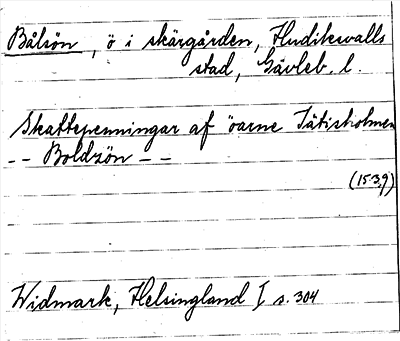 Bålsön, ö i skärgården, Hudikswalls
stad, Gävleb. l.
Skattepenningar af öarne Tätisholmen
-- Boldzön --
(1539)
Widmark, Helsingland I s. 304